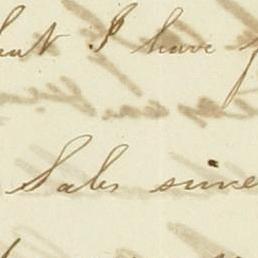 that I have
Sales since